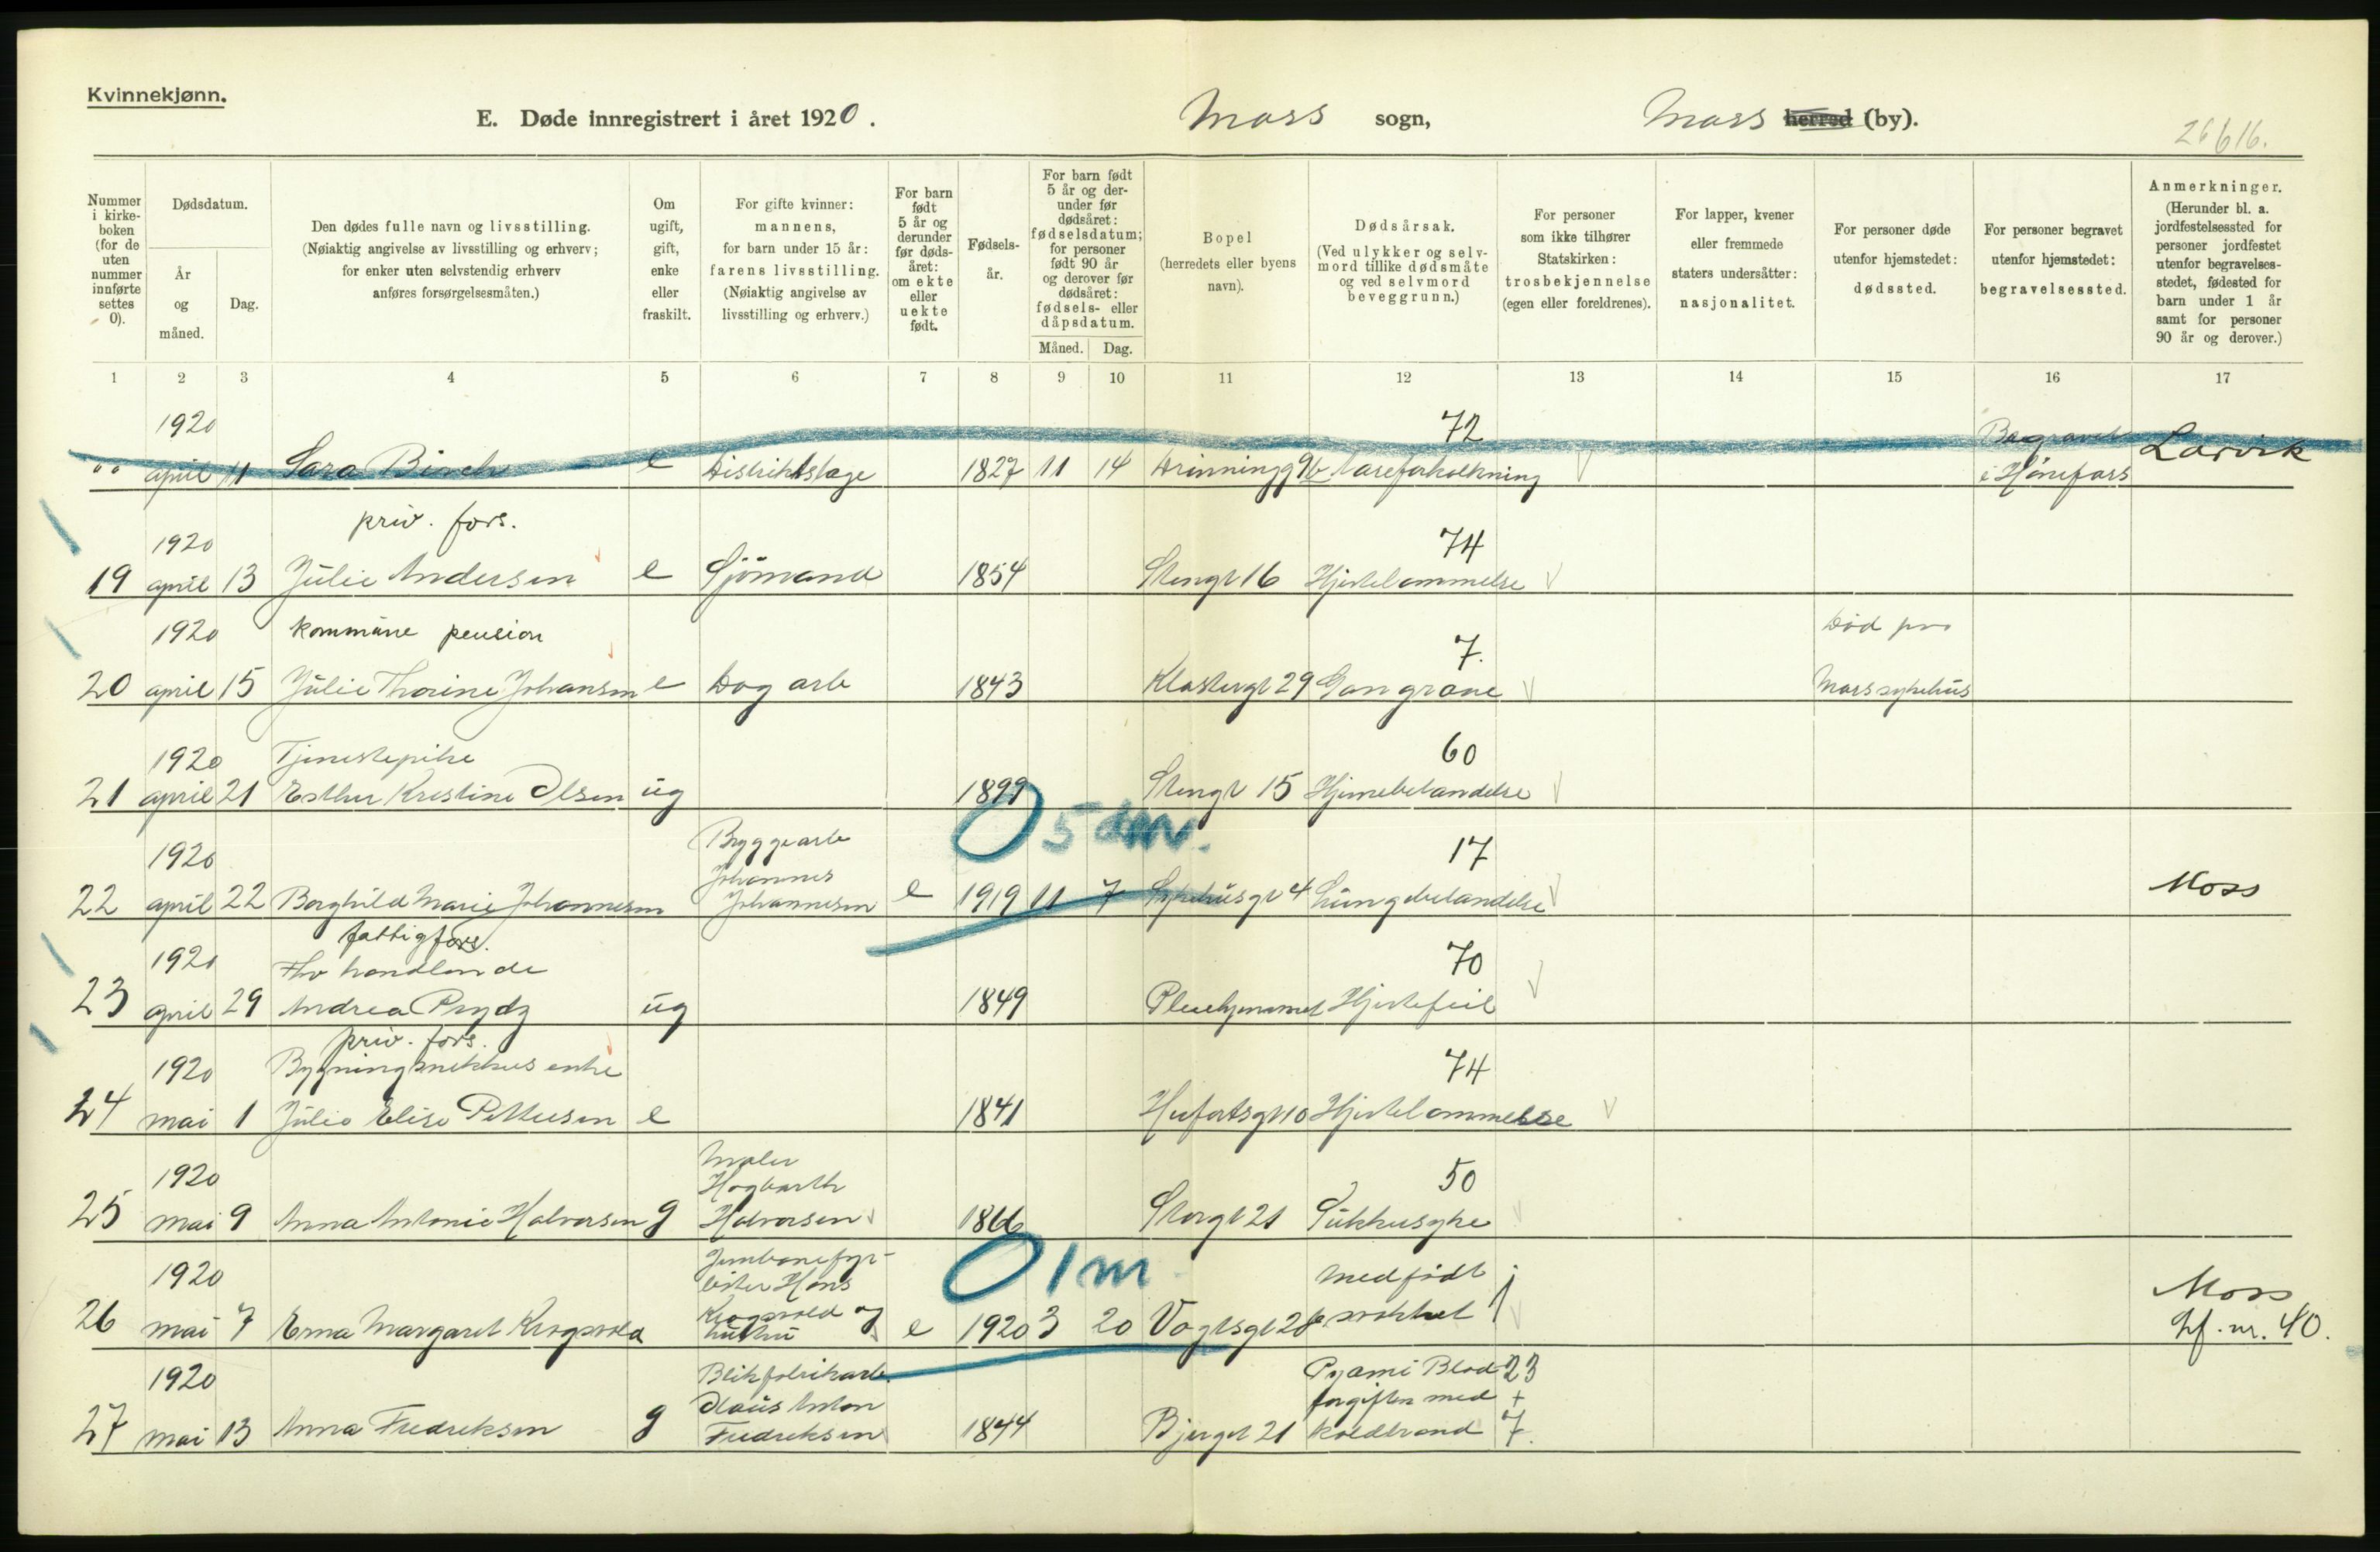 Kvinnekjønn.
E. Døde innregistrert i året 1920. Moss sogn, Moss herred (by).
26616.
Nummer i kirkeboken (for de uten nummer innførte settes 0).
Dødsdatum.
År og måned.
Dag.
Den dødes fulle navn og livsstilling. (Nøiaktig angivelse av livsstilling og erhverv; for enker uten selvstendig erhverv anføres forsørgelsesmåten.)
Om ugift, gift, enke eller fraskilt.
For gifte kvinner: mannens, for barn under 15 år: farens livsstilling. (Nøiaktig angivelse av livsstilling og erhverv.)
For barn født 5 år og derunder før dødsåret: om ekte eller uekte født.
Fødselsår.
For barn født 5 år og derunder før dødsåret: fødselsdatum; for personer født 90 år og derover før dødsåret: fødsels- eller dåpsdatum.
Måned. Dag.
Bopel (herredets eller byens navn).
Dødsårsak. (Ved ulykker og selvmord tillike dødsmåte og ved selvmord beveggrunn.)
For personer som ikke tilhører Statskirken: trosbekjennelse (egen eller foreldrenes).
For lapper, kvener eller fremmede staters undersåtter: nasjonalitet.
For personer døde utenfor hjemstedet: dødssted.
For personer begravet utenfor hjemstedet: begravelsessted.
Anmerkninger. (Herunder bl. a. jordfestelsessted for personer jordfestet utenfor begravelsesstedet, fødested for barn under 1 år samt for personer 90 år og derover.)
1 2 3 4 5 6 7 8 9 10 11 12 13 14 15 16 17
1920 72 Begravet
"" april 11 Sara Birch e Distriktslæge 1827 11 14 Areforkalkning i Hønefoss Larvik
priv. fors.
1920 74
19 april 13 Julie Andersen e Sjömand 1854 Stengt 16 Hjertelammelse
1920 kommune pension 7. Död paa
20 april 15 Julie Thorine Johansen e Dag arb 1843 Klostergt 29 Gangræne Moss sykehus
1920 Tjenestepike 60
21 april 21 Esther Kristine Olsen ug 1899 Stengt 15 Hjernebetændelse
O 5 dm.
1920 Byggearb 17
Johannes
22 april 22 Borghild Marie Johannesen Johannesen e 1919 11 7 Sykehusgt 4 Lungebetændelse Moss
fattigfors.
1920 Fhv handlende 70
23 april 29 Andrea Prydz ug 1849 Pleiehjemmet Hjertefeil
priv. fors.
1920 Bygningsnekkers enke 74
24 mai 1 Julie Elise Pettersen e 1841 Hjertelammelse
Maler
1920 Hogbarth 50
25 mai 9 Anna Antonie Halvorsen g Halvorsen 1866 Storgt 21 Sukkersyke
O 1 m
Jernbanefyr-
1920 böter Hans Medfødt Moss
Krogsvold og
26 mai 7 Erna Margaret Krogsvold hustru e 1920 3 20 Vogtsgt svakhet hf. nr. 40.
1920 Blikfabrikarb. Pyæmi Blod 23
Claus Anton forgiften med +
27 mai 13 Anna Fredriksen g Fredriksen 1844 Bjergt 21 koldbrand 7.